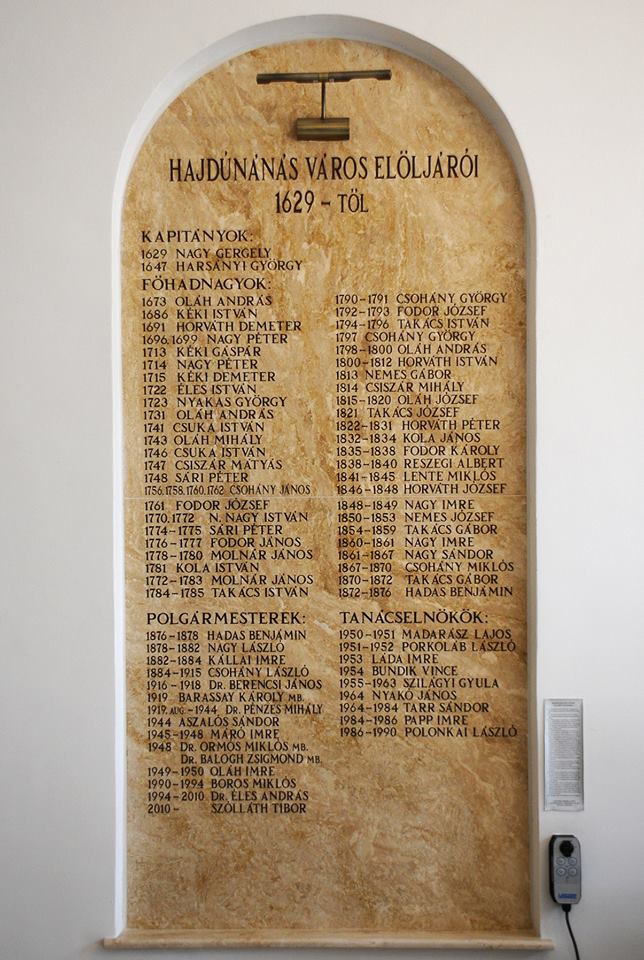 HAJDÚNÁNÁS VÁROS ELÖLJÁRÓI
1629 - TÖL
KAPITÁNYOK:
1629 NAGY GERGELY
1647 HARSÁNYI GYÖRGY
FÖHADNAGYOK:
1673 OLÁH ANDRÁS
1686 KÉKI ISTVÁN
1691 HORVÁTH DEMETER
1696.1699 NAGY PÉTER
1713 KÉKI GÁSPÁR
1714 NAGY PÉTER
1715 KÉKI DEMETER
1722 ÉLES ISTVÁN
1723 NYAKAS GYÖRGY
1731 OLÁH ANDRÁS
1741 CSUKA ISTVÁN
1743 OLÁH MIHÁLY
1746 CSUKA ISTVÁN
1747 CSISZÁR MÁTYÁS
1748 SÁRI PÉTER
1756.1758.1760.1762 CSOHÁNY JÁNOS
1761 FODOR JÓZSEF
1770.1772 N. NAGY ISTVÁN
1774-1775 SÁRI PÉTER
1776-1777 FODOR JÁNOS
1778-1780 MOLNÁR JÁNOS
1781 KOLA ISTVÁN
1772-1783 MOLNÁR JÁNOS
1784-1785 TAKÁCS ISTVÁN
1790-1791 CSOHÁNY GYÖRGY
1792-1793 FODOR JÓZSEF
1794-1796 TAKÁCS ISTVÁN
1797 CSOHÁNY GYÖRGY
1798-1800 OLÁH ANDRÁS
1800-1812 HORVÁTH ISTVÁN
1813 NEMES GÁBOR
1814 CSISZÁR MIHÁLY
1815-1820 OLÁH JÓZSEF
1821 TAKÁCS JÓZSEF
1822-1831 HORVÁTH PÉTER
1832-1834 KOLA JÁNOS
1835-1838 FODOR KÁROLY
1838-1840 RESZEGI ALBERT
1841-1845 LENTE MIKLÓS
1846-1848 HORVÁTH JÓZSEF
1848-1849 NAGY IMRE
1850-1853 NEMES JÓZSEF
1854-1859 TAKÁCS GÁBOR
1860-1861 NAGY IMRE
1861-1867 NAGY SÁNDOR
1867-1870 CSOHÁNY MIKLÓS
1870-1872 TAKÁCS GÁBOR
1872-1876 HADAS BENJÁMIN
POLGÁRMESTEREK:
1876-1878 HADAS BENJÁMIN
1878-1882 NAGY LÁSZLÓ
1882-1884 KÁLLAI IMRE
1884-1915 CSOHÁNY LÁSZLÓ
1916-1918 DR. BERENCSI JÁNOS
1919 BARASSAY KÁROLY MB.
1919. AUG.-1944 DR. PÉNZES MIHÁLY
1944 ASZALÓS SÁNDOR
1945-1948 MARÓ IMRE
1948 DR. ORMÓS MIKLÓS MB.
DR. BALOGH ZSIGMOND MB.
1949-1950 OLÁH IMRE
1990-1994 BOROS MIKLÓS
1994-2010 DR. ÉLES ANDRÁS
2010- SZÓLLÁTH TIBOR
TANÁCSELNÖKÖK:
1950-1951 MADARÁSZ LAJOS
1951-1952 PORKOLÁB LÁSZLÓ
1953 LÁDA IMRE
1954 BUNDIK VINCE
1955-1963 SZILÁGYI GYULA
1964 NYAKÓ JÁNOS
1964-1984 TARR SÁNDOR
1984-1986 PAPP IMRE
1986-1990 POLONKAI LÁSZLÓ